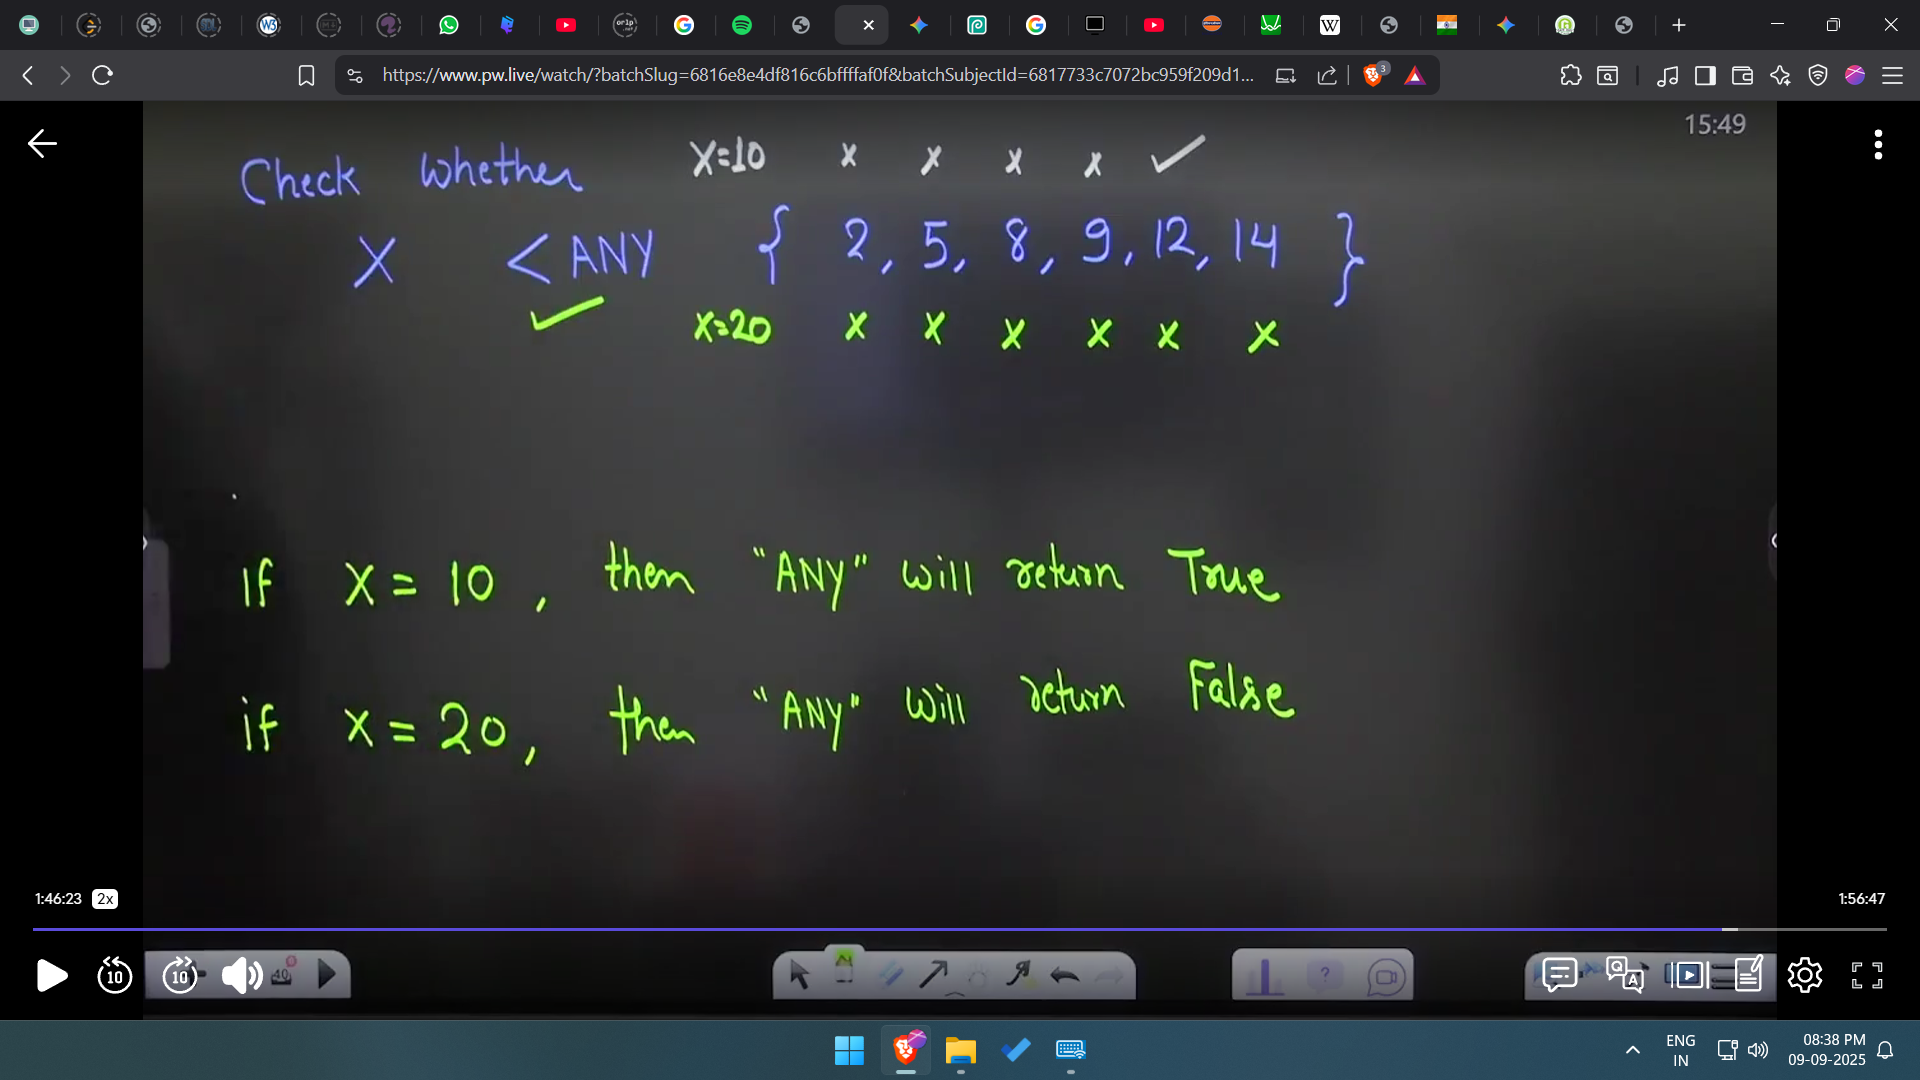 https://www.pw.live/watch/?batchSlug=6816e8e4df816c6bffffaf0f&batchSubjectId=6817733c7072bc959f209d1...
3
15:49
X=10 x x x x ✓
Check whether
X < ANY { 2, 5, 8, 9, 12, 14 }
✓ X=20 x x x x x x
If X = 10, then "ANY" will return True
if X = 20, then "ANY" will return False
1:46:23 2x 1:56:47
10 10 40
ENG
IN
08:38 PM
09-09-2025